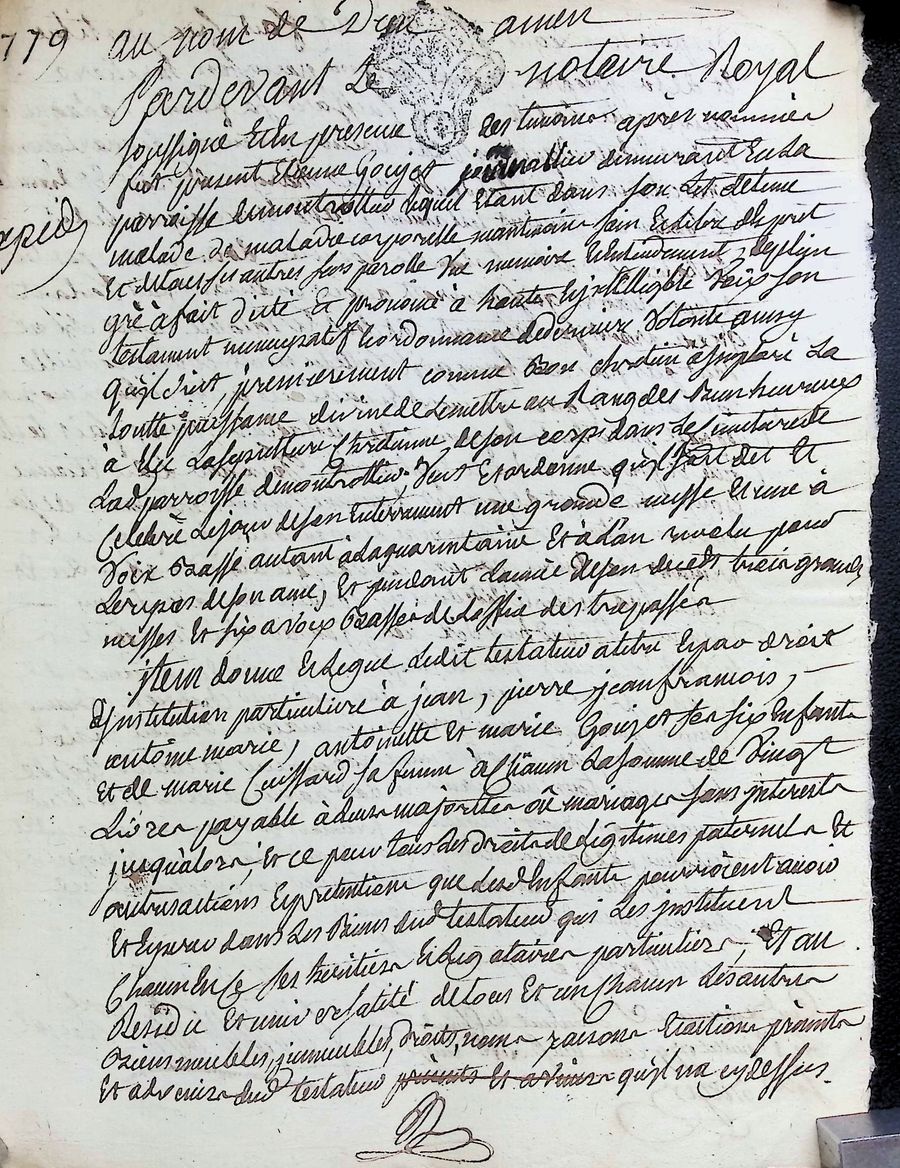 1779 au nom de Dieu amen
Pardevant Le notaire Royal
soussigné Et En presence des temoins après nommés
fut present Etienne Goujet journallier demeurant En La
parroisse de montrottier lequel Etant dans son Lit detenu
expié
malade de maladie corporelle mantmoins sain Et libre desprit
Et de tous ses autres sens parolle Vue memoire Et Entendement, de plein
gré a fait dicté Et prononcé à haute Et jntelligible Voix son
testament noncupatif Et ordonnance de derniere Volonté ainsy
quil suit, premierement comme Bon chretien a jmploré La
toutte puissance divine de Le mettre au Rang des Bienheureux
à Elu La sepulture Chretienne de son corps dans Le cimitiere de
Lad parroisse de montrottier, Veut Et ordonne quil soit dit Et
Celebré Le jour de son Enterrement une grande messe Et une à
Voix Basse autant à la quarantaine Et à L'an revolu pour
Le repos de son ame, Et pendant L'année de son decéds trois grandes
messes Et six a voix Basse de Loffice des trepassés
jtem donne Et Legue Ledit testateur a titre Et par droit
d'jnstitution particuliere à jean, pierre, jean francois,
antoine marie, antoinette Et marie Goujet ses six Enfants
Et de marie Cuissard sa femme à Chacun La somme de Vingt
Livres payable à leurs majorités où mariages sans jnterest
jusqu'alors, Et ce pour tous Les droits de Legitimes paternels Et
autres actions Et pretentions que lesd Enfants pourroient avoir
Et Esperer dans Les Biens dud testateur qui Les jnstituent
Chacun En Ce ses heritiers Et Legataires particuliers, Et au
Residu Et universalité de tous Et un Chacun Les autres
Biens meubles, jmmeubles, droits, noms raisons Et actions présents
Et advenir dud testateur présents Et avenir quil na cy dessus